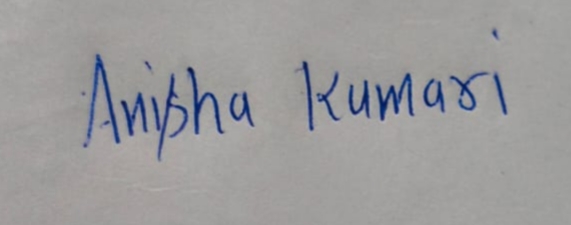 Anisha Kumari